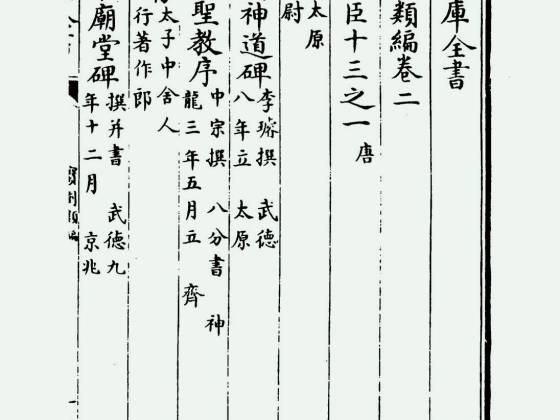 庫全書
類編卷二
臣十三之一 唐
太原
尉
神道碑 李璿撰 武德
八年立 太原
聖教序 中宗撰 八分書 神
龍三年五月立 齊
太子中舍人
行著作郎
廟堂碑 撰并書 武德九
年十二月 京兆